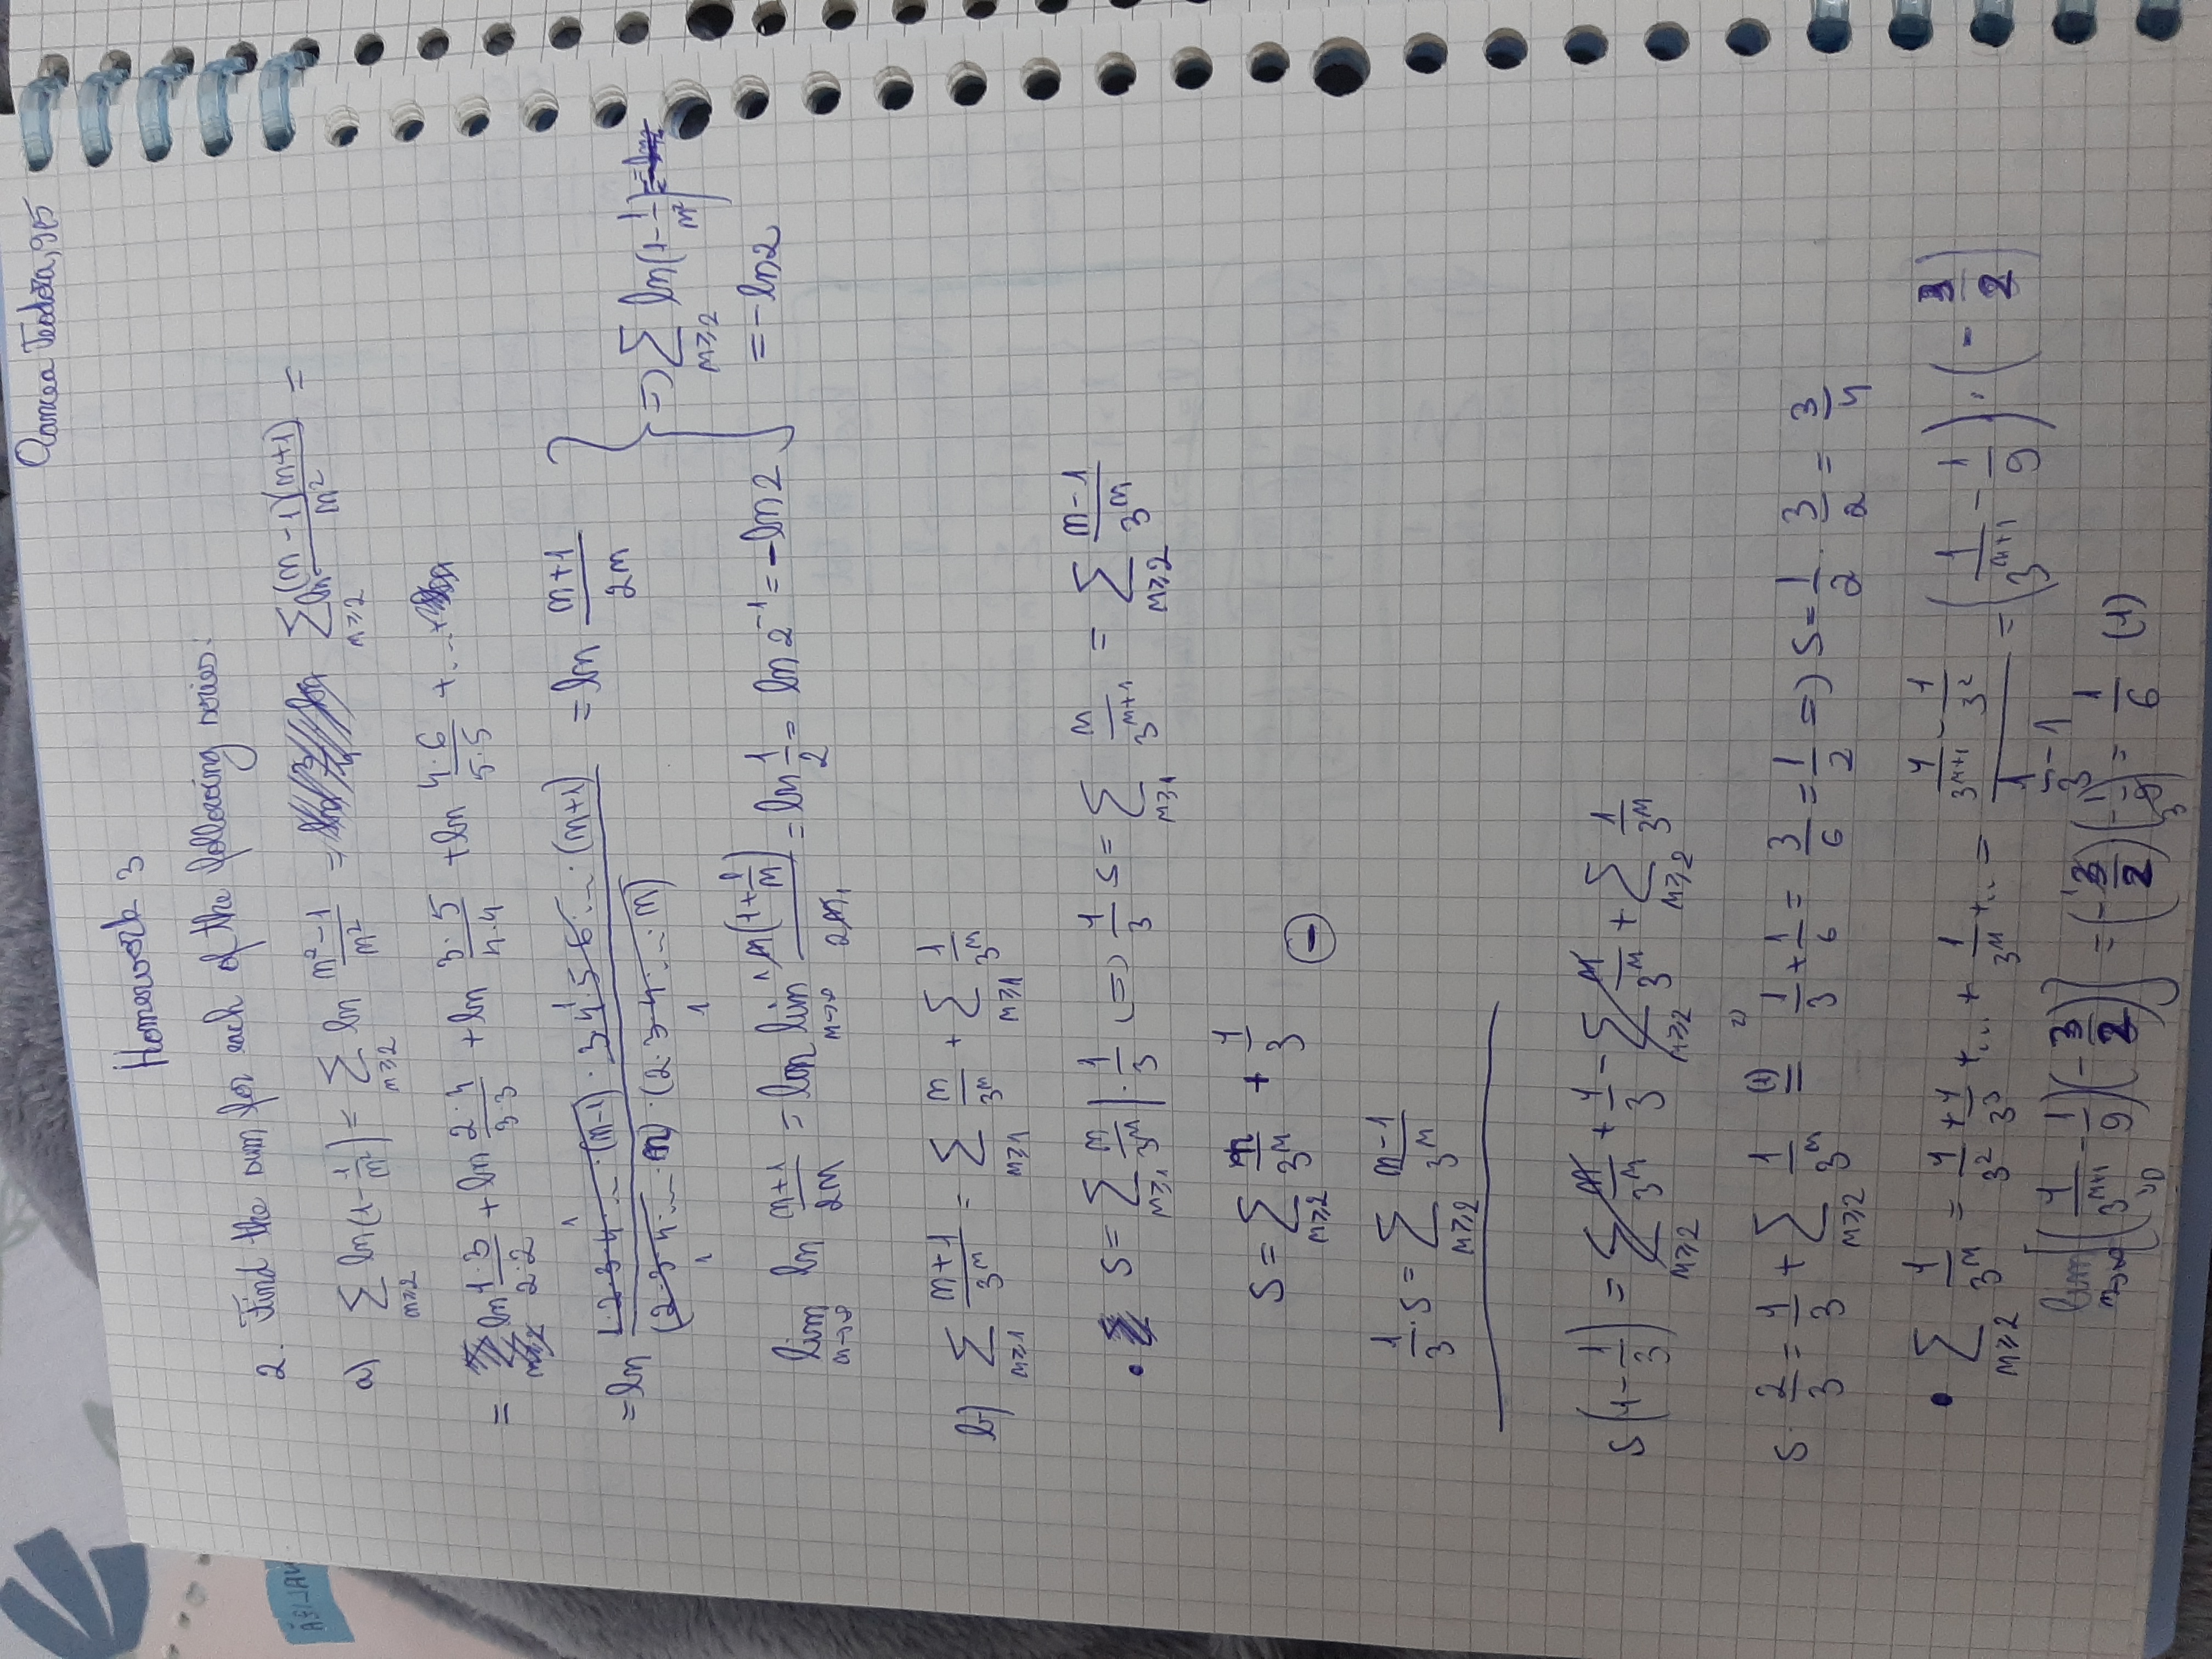 Homework 3
2. Find the sum for each of the following series:
a) ∑_{n≥2} ln(1-1/n²) = ∑_{n≥2} ln (n²-1)/n² = ∑_{n≥2} ln (n-1)(n+1)/n² =
= ln 1·3/2·2 + ln 2·4/3·3 + ln 3·5/4·4 + ln 4·6/5·5 + ... +
= ln (1·2·3·4·...·(n-1)·3·4·5·6·...·(n+1))/((2·3·4·...·n)·(2·3·4·...·n)) = ln (n+1)/2n } => ∑_{n≥2} ln(1-1/n²)
lim_{n→∞} ln (n+1)/2n = ln lim_{n→∞} n(1+1/n)/2n = ln 1/2 = ln 2⁻¹ = -ln2 = -ln2
b) ∑_{n≥1} (n+1)/3ⁿ = ∑_{n≥1} n/3ⁿ + ∑_{n≥1} 1/3ⁿ
• S = ∑_{n≥1} n/3ⁿ | · 1/3 (=) 1/3 S = ∑_{n≥1} n/3ⁿ⁺¹ = ∑_{n≥2} (n-1)/3ⁿ
S = ∑_{n≥2} n/3ⁿ + 1/3
⊖
1/3 · S = ∑_{n≥2} (n-1)/3ⁿ
S(1-1/3) = ∑_{n≥2} n/3ⁿ + 1/3 - ∑_{n≥2} n/3ⁿ + ∑_{n≥2} 1/3ⁿ
S · 2/3 = 1/3 + ∑_{n≥2} 1/3ⁿ =(1) ²⁾1/3 + 1/6 = 3/6 = 1/2 => S = 1/2 · 3/2 = 3/4
• ∑_{n≥2} 1/3ⁿ = 1/3² + 1/3³ + ... + 1/3ⁿ + .. = (1/3ⁿ⁺¹ - 1/3²)/(1/3 - 1) = (1/3ⁿ⁺¹ - 1/9) · (-3/2)
lim_{n→∞} [(1/3ⁿ⁺¹ - 1/9)(-3/2)] = (-3/2)(-1/9) = 1/6 (1)